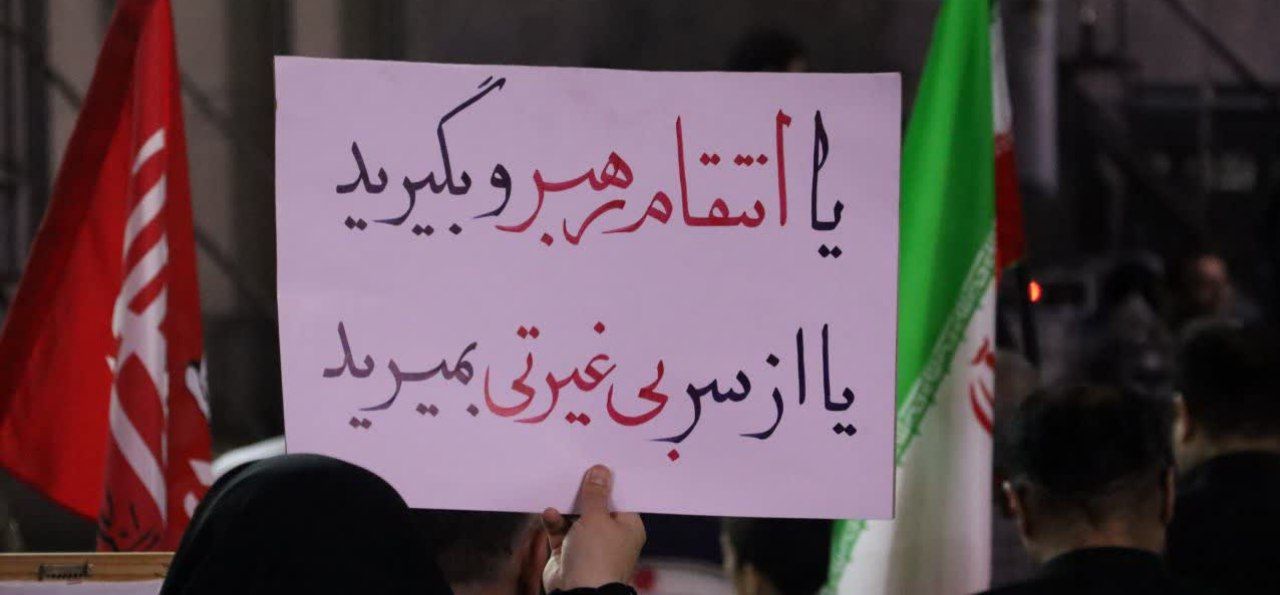 یا انتقام رهبر و بگیرید
یا از سر بی غیرتی بمیرید